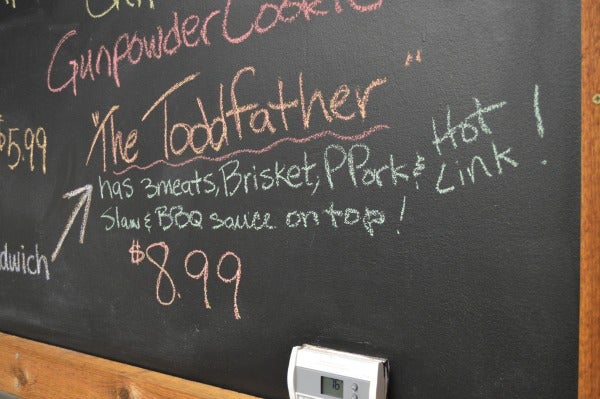 GunpowderCookie
"The Toddfather"
$5.99
has 3meats, Brisket, PPork & Hot Link!
Slaw & BBQ sauce on top!
dwich
$8.99
76